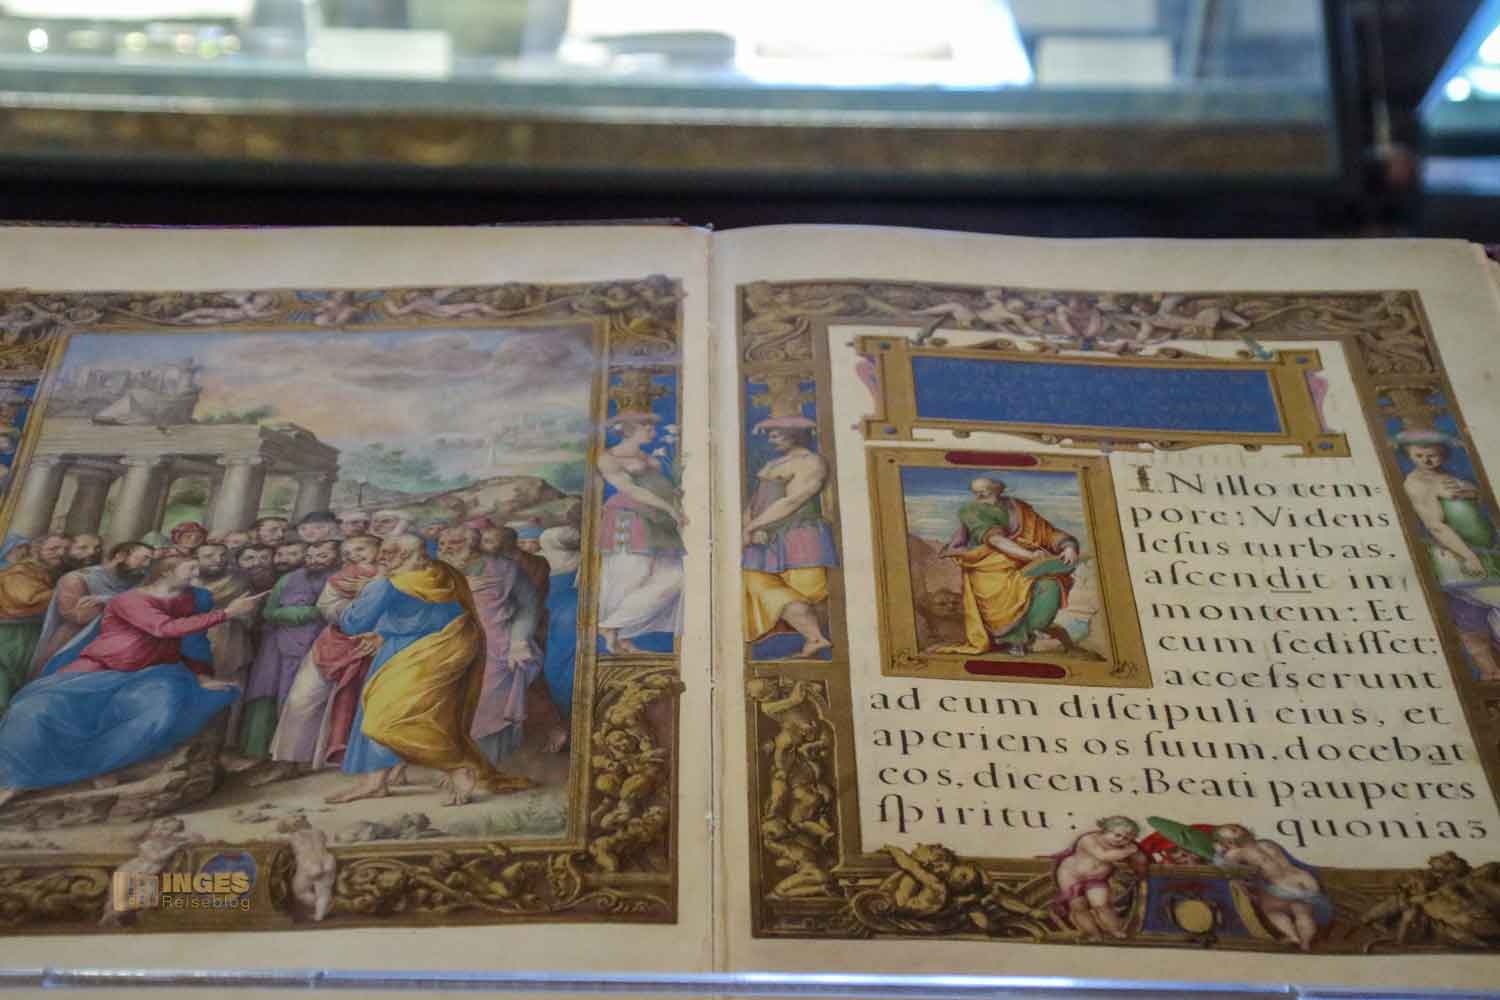 IN illo tem-
pore: Videns
Iesus turbas.
ascendit in
montem: Et
cum sedisset:
accesserunt
ad eum discipuli eius, et
aperiens os suum, docebat
eos, dicens, Beati pauperes
spiritu:
quoniaʒ
INGES
Reiseblog